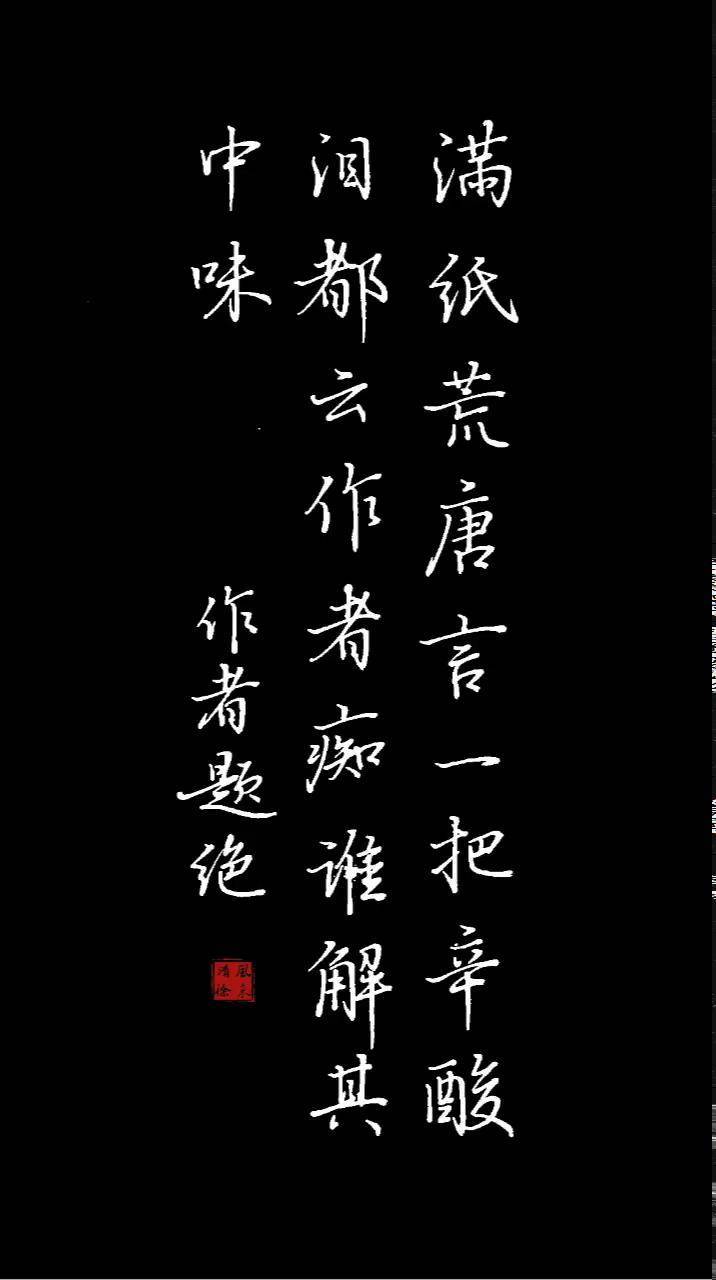 满纸荒唐言一把辛酸
泪都云作者痴谁解其
中味
作者题绝
風来
清徐